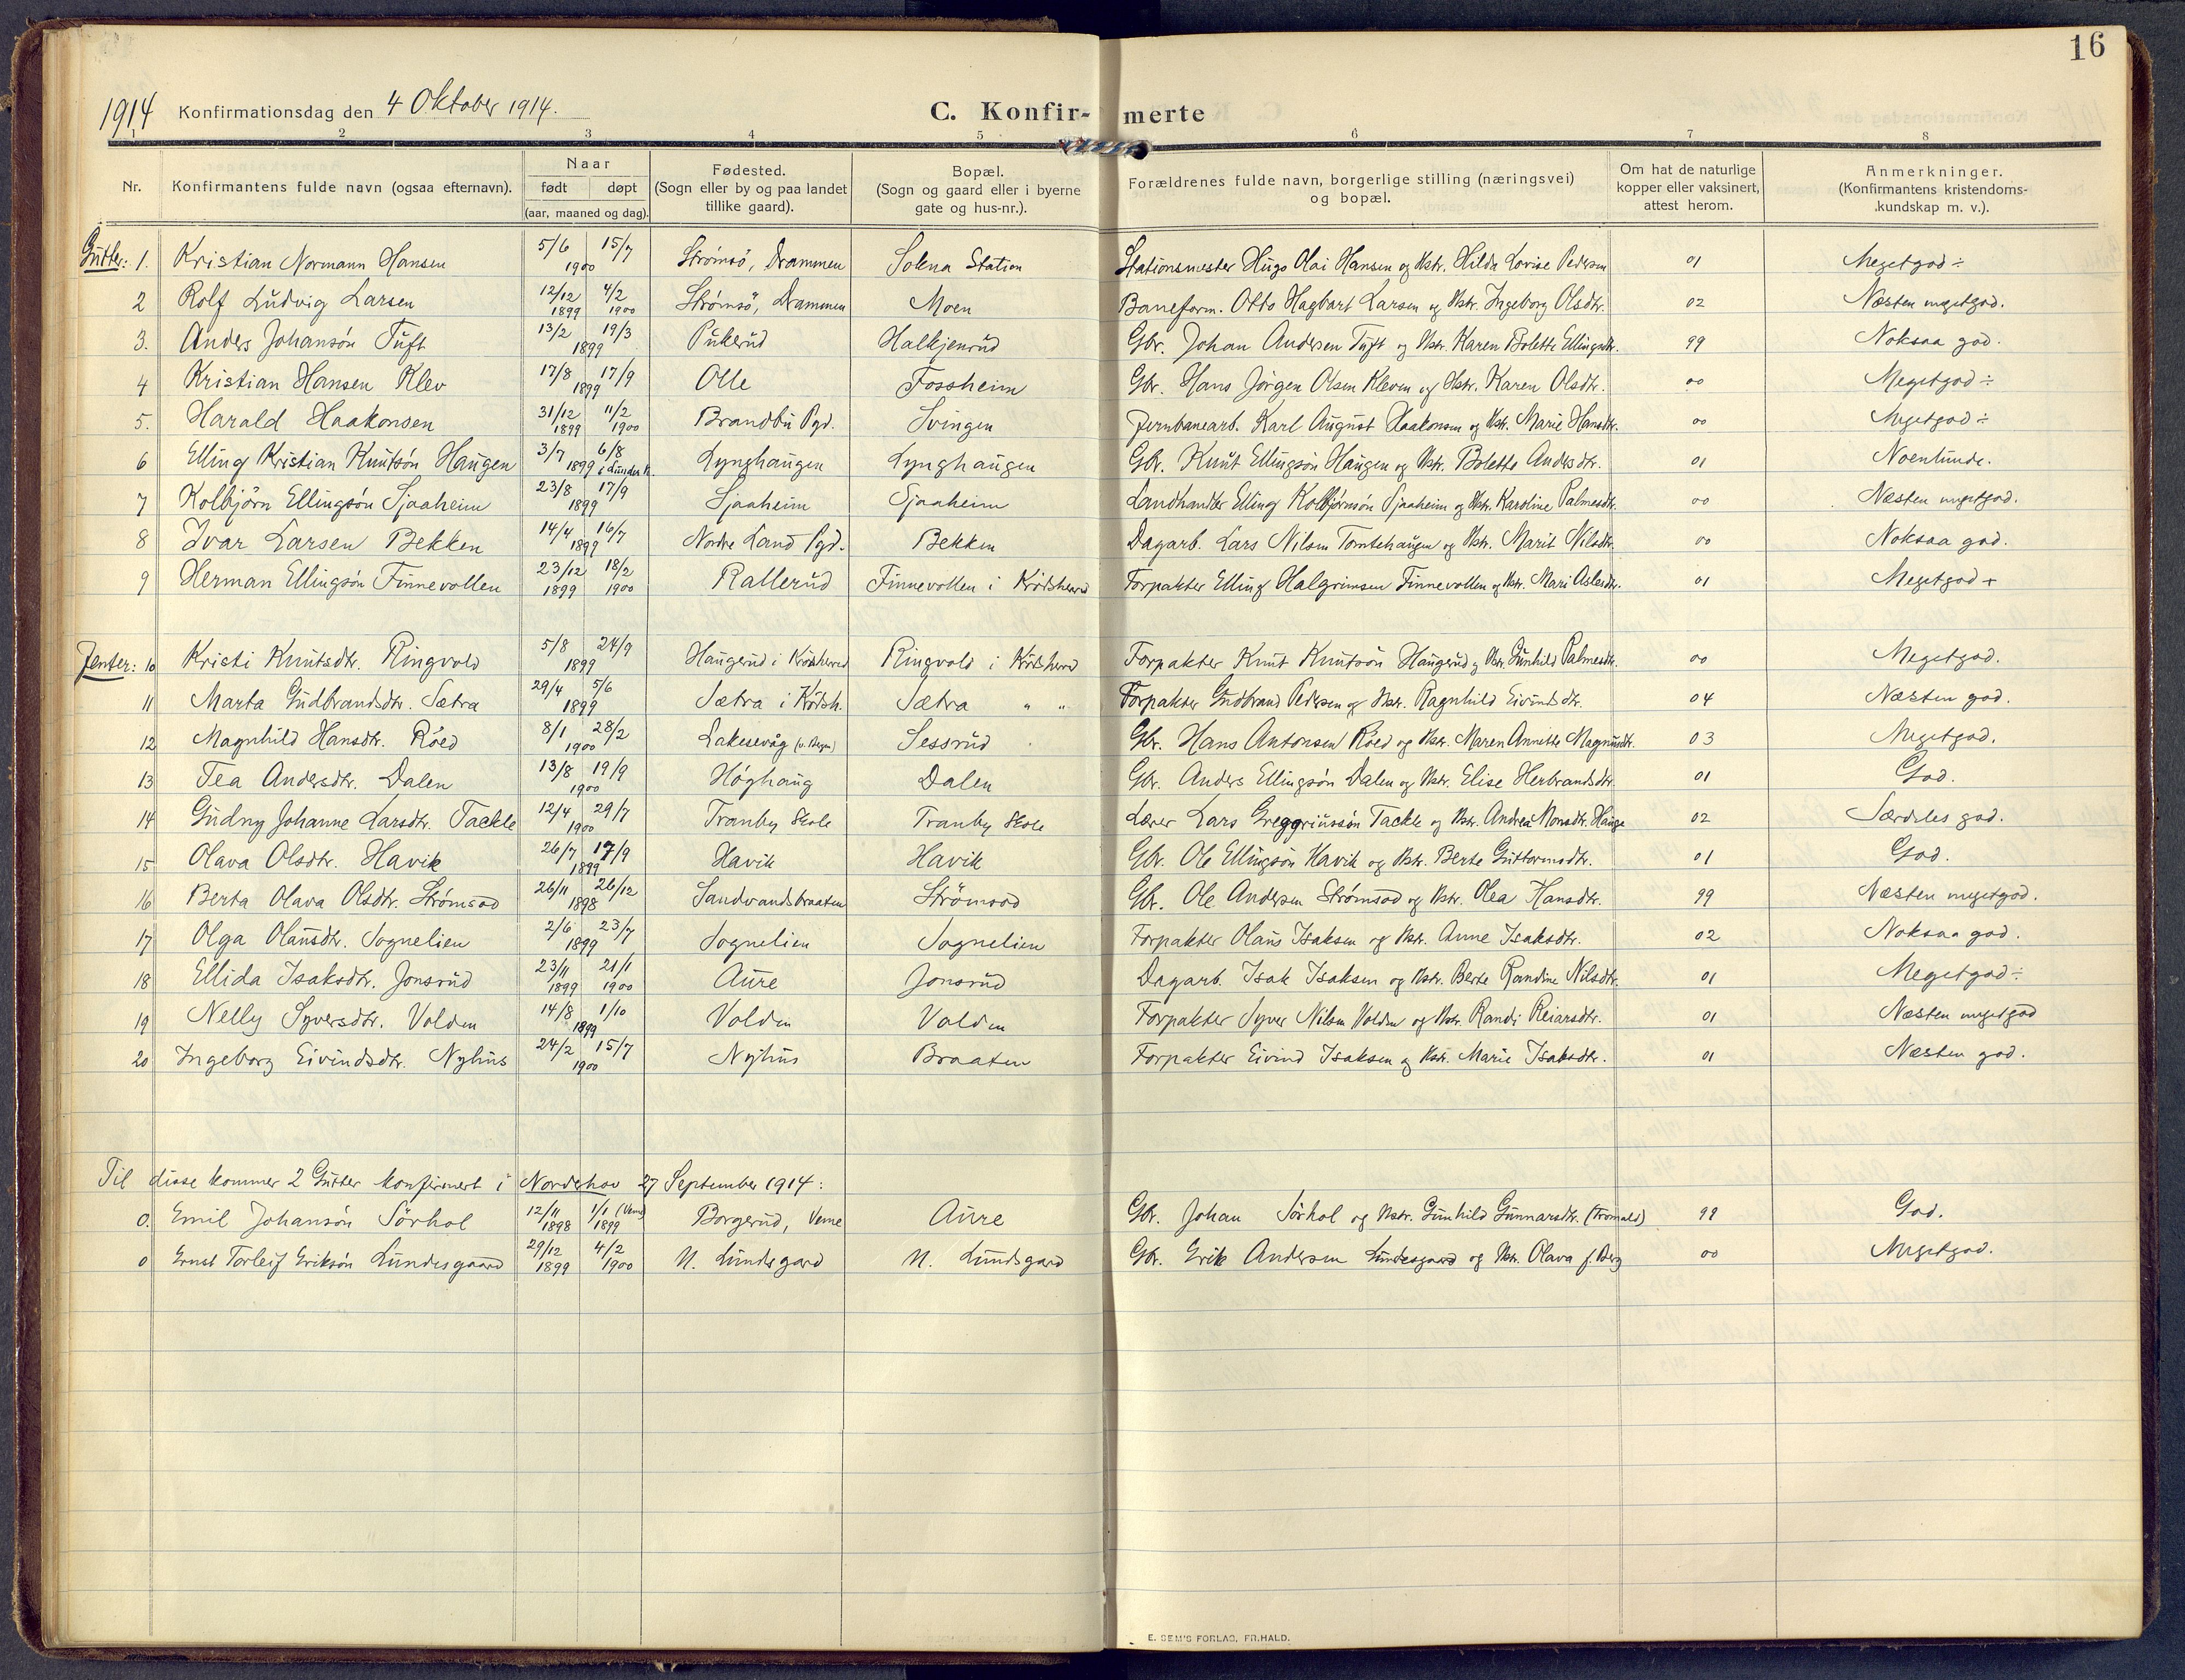 16
1914 Konfirmationsdag den 4 Oktober 1914.
C. Konfirmerte
1 2 3 4 5 6 7 8
Nr. Konfirmantens fulde navn (ogsaa efternavn). Naar født døpt (aar, maaned og dag). Fødested. (Sogn eller by og paa landet tillike gaard). Bopæl. (Sogn og gaard eller i byerne gate og hus-nr.). Forældrenes fulde navn, borgerlige stilling (næringsvei) og bopæl. Om hat de naturlige kopper eller vaksinert, attest herom. Anmerkninger. (Konfirmantens kristendoms-kundskap m. v.).
Gutter: 1. Kristian Normann Hansen 5/6 15/7 1900 Strømsö, Drammen Sokna Station Stationsmester Hugo Olai Hansen og Hstr. Hilda Lovise Pedersen 01 Megetgod ÷
2 Rolf Ludvig Larsen 12/12 1899 4/2 1900 Strømsö, Drammen Moen Baneform. Otto Hagbart Larsen og Hstr. Ingeborg Olsdtr. 02 Næsten megetgod.
3. Anders Johansön Tuft 13/2 19/3 1899 Pukerud Halkjenrud Gbr. Johan Andersen Tuft og Hstr. Karen Bolette Ellingsdtr. 99 Noksaa god.
4 Kristian Hansen Klev 17/8 17/9 1899 Olle Fossheim Gbr. Hans Jörgen Olsen Kleven og Hstr. Karen Olsdtr. 00 Megetgod ÷
5. Harald Haakonsen 31/12 1899 11/2 1900 Brandbu Pgd. Svingen Jernbanearb. Karl August Haakonsen og Hstr. Marie Hansdtr. 00 Megetgod ÷
6 Elling Kristian Knutsön Haugen 3/7 6/8 1899 i Lunder K. Lynghaugen Lynghaugen Gbr. Knut Ellingsön Haugen og Hstr. Bolette Andersdtr. 01 Noenlunde.
7 Kolbjörn Ellingsön Sjaaheim 23/8 17/9 1899 Sjaaheim Sjaaheim Landhandler Elling Kolbjörnsön Sjaaheim og Hstr. Karoline Palmesdtr. 00 Næsten megetgod.
8 Ivar Larsen Bekken 14/4 16/7 1899 Nordre Land Pgd. Bekken Dagarb. Lars Nilsen Tomtehaugen og Hstr. Marit Nilsdtr. 00 Noksaa god.
9 Herman Ellingsön Finnevollen 23/12 1899 18/2 1900 Rallerud Finnevollen i Krödsherred Forpakter Elling Halgrimsen Finnevollen og Hstr. Mari Aslesdtr. 01 Megetgod +
Jenter: 10 Kristi Knutsdtr. Ringvold 5/8 24/9 1899 Haugerud i Krödsherred Ringvold i Krödsherred Forpakter Knut Knutsön Haugerud og Hstr. Gunhild Palmesdtr. 00 Megetgod.
11 Marta Gudbrandsdtr. Sætra 29/4 5/6 1899 Sætra i Krödsh. Sætra " " Forpakter Gudbrand Pedersen og Hstr. Ragnhild Eivindsdtr. 04 Næsten god.
12 Magnhild Hansdtr. Röed 8/1 28/2 1900 Laksevåg (v. Bergen) Sessrud Gbr. Hans Antonsen Röed og Hstr. Maren Annette Magnusdtr. 03 Megetgod.
13 Tea Andersdtr. Dalen 13/8 19/9 1900 Höghaug Dalen Gbr. Anders Ellingsön Dalen og Hstr. Elise Herbrandsdtr. 01 God.
14 Gudny Johanne Larsdtr. Tackle 12/4 29/7 1900 Tranby Skole Tranby Skole Lærer Lars Greggriussön Tackle og Hstr. Andrea Monsdtr. Hauge 02 Særdeles god.
15 Olava Olsdtr. Havik 26/7 17/9 1899 Havik Havik Gbr. Ole Ellingsön Havik og Hstr. Berte Guttormsdtr. 01 God.
16 Berta Olava Olsdtr. Strømsod 26/11 26/12 1898 Sandvandsbraaten Strömsod Gbr. Ole Andersen Strømsod og Hstr. Olea Hansdtr. 99 Næsten megetgod.
17 Olga Olausdtr. Sognelien 2/6 23/7 1899 Sognelien Sognelien Forpakter Olaus Isaksen og Hstr. Anne Isaksdtr. 02 Noksaa god.
18 Ellida Isaksdtr. Jonsrud 23/11 1899 21/1 1900 Aure Jonsrud Dagarb. Isak Isaksen og Hstr. Berte Randine Nilsdtr. 01 Megetgod ÷
19 Nelly Syversdtr. Volden 14/8 1/10 1899 Volden Volden Forpakter Syver Nilsen Volden og Hstr. Randi Reiarsdtr. 01 Næsten megetgod
20 Ingeborg Eivindsdtr. Nyhus 24/2 15/7 1900 Nyhus Braaten Forpakter Eivind Isaksen og Hstr. Marie Isaksdtr. 01 Næsten god.
Til disse kommer 2 Gutter konfirmert i Norderhov 27 September 1914:
0. Emil Johansön Sörhol 12/11 1898 1/1 (Veme) 1899 Borgerud, Veme Aure Gbr. Johan Sörhol og Hstr. Gunhild Gunnarsdtr. (Tromald) 99 God.
0 Ernst Torleif Eriksön Lundesgaard 29/12 1899 4/2 1900 N. Lundsgard N. Lundsgard Gbr. Erik Andersen Lundesgaard og Hstr. Olava f. Berg 00 Megetgod.
E. SEM'S FORLAG, FR.HALD.